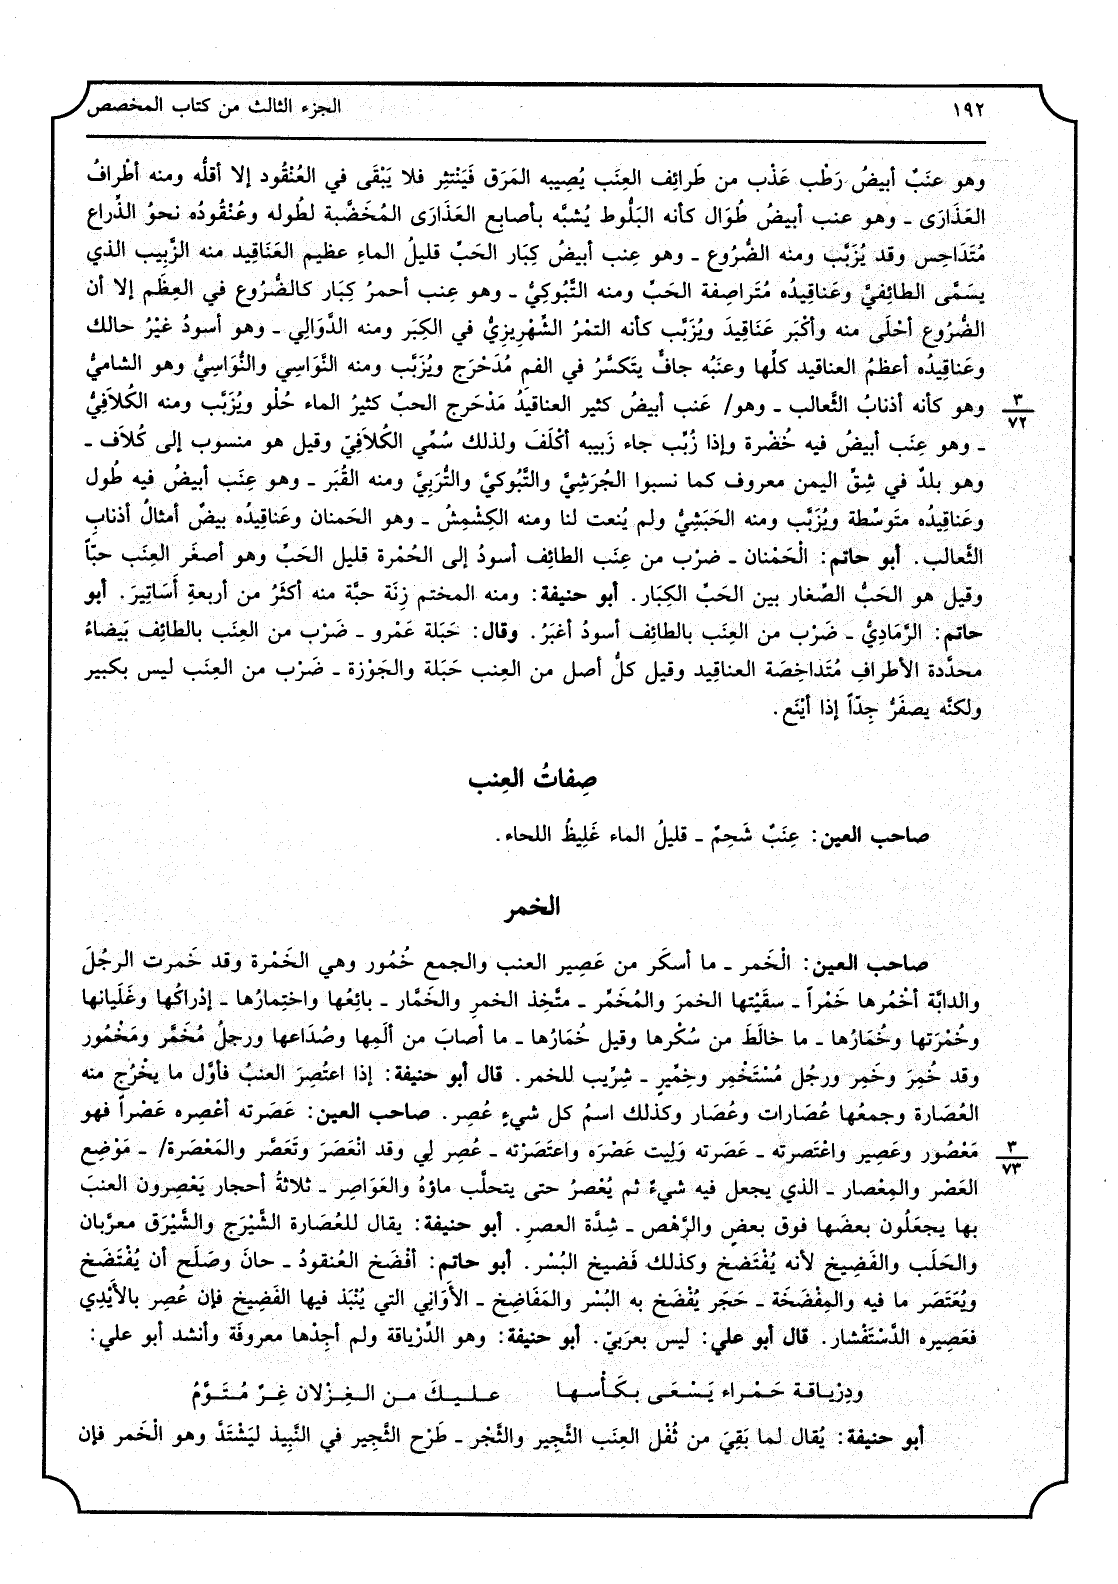 ١٩٢
الجزء الثالث من كتاب المخصص
وهو عنَبٌ أبيضُ رَطْب عَذْب من طَرائِف العِنَب يُصِيبه المَرَق فَيَنْتثِر فلا يَبْقَى في العُنْقُود إلا أقلُّه ومنه أطْرافُ
العَذَارَى ـ وهو عنب أبيضُ طُوَال كأنه البَلُّوط يُشبَّه بأصابع العَذَارَى المُخَضَّبة لطُوله وعُنْقُودُه نحوُ الذِّراع
مُتَدَاحِس وقد يُزَبَّب ومنه الضُّرُوع ـ وهو عِنب أبيضُ كِبَار الحَبِّ قليلُ الماءِ عظيم العَنَاقِيد منه الزَّبِيب الذي
يسَمَّى الطائِفيَّ وعَناقِيدُه مُتَراصِفة الحَبِّ ومنه التَّبُوكِيُّ ـ وهو عِنب أحمرُ كِبَار كالضُّرُوع في العِظَم إلا أن
الضُّرُوع أحْلَى منه وأكْبَر عَنَاقِيدَ ويُزَبَّب كأنه التمْرُ الشِّهْرِيزِيُّ في الكِبَر ومنه الدَّوَالِي ـ وهو أسودُ غيْرُ حالك
وعَناقِيدُه أعظمُ العناقيد كلِّها وعنَبُه جافٌّ يتَكسَّرُ في الفم مُدَحْرَج ويُزَبَّب ومنه النَّوَاسِي والنُّوَاسِيُّ وهو الشاميُّ
وهو كأنه أذنابُ الثَّعالب ـ وهو/ عَنب أبيضُ كثير العناقيدُ مَدْحَرج الحبِّ كثيرُ الماء حُلْو ويُزَبَّب ومنه الكُلَافِيُّ
٣
٧٢
ـ وهو عِنَب أبيضُ فيه خُضْرة وإذا زُبِّب جاء زَبِيبه أكْلَفَ ولذلك سُمِّي الكُلَافِيّ وقيل هو منسوب إلى كُلاَف ـ
وهو بلدٌ في شِقِّ اليمن معروف كما نسبوا الجُرَشِيَّ والتَّبُوكيَّ والتُّرَبِيَّ ومنه القُبَر ـ وهو عِنَب أبيضُ فيه طُول
وعَناقِيدُه متَوسِّطة ويُزَبَّب ومنه الحَبَشِيُّ ولم يُنعت لنا ومنه الكِشْمِشُ ـ وهو الحَمنان وعَناقِيدُه بيضٌ أمثالُ أذنابِ
الثَّعالب. أبو حاتم: الْحَمْنان ـ ضرْب من عِنَب الطائِف أسودُ إلى الحُمْرة قليل الحَبِّ وهو أصغَر العِنَب حبّاً
وقيل هو الحَبُّ الصِّغار بين الحَبِّ الكِبَار. أبو حنيفة: ومنه المختم زِنَة حبَّة منه أكثَرُ من أربعةِ أَسَاتِيرَ. أبو
حاتم: الرَّمَادِيُّ ـ ضَرْب من العِنَب بالطائِف أسودُ أغبَرُ. وقال: حَبَلة عَمْرو ـ ضَرْب من العِنَب بالطائِف بَيضاءُ
محدَّدة الأطراف مُتَداحِضَة العناقِيد وقيل كلُّ أصل من العِنب حَبَلة والجَوْزة ـ ضَرْب من العِنَب ليس بكبير
ولكنَّه يصفَرُّ جِدّاً إذا أيْنَع.
صِفاتُ العِنب
صاحب العين: عِنَبٌ شَحِمٌ ـ قليلُ الماء غَلِيظُ اللحاء.
الخمر
صاحب العين: الْخَمر ـ ما أسكَر من عَصِير العنب والجمع خُمُور وهي الخَمْرة وقد خَمرت الرجُلَ
والدابَّة أخْمُرها خَمْراً ـ سقَيْتها الخمرَ والمُخَمِّر ـ متَّخِذ الخمرِ والخَمَّار ـ بائِعُها واختِمارُها ـ إدْراكُها وغَلَيانها
وخُمْرَتها وخُمَارُها ـ ما خالَطَ من سُكْرها وقيل خُمَارُها ـ ما أصابَ من ألَمِها وصُدَاعها ورجلُ مُخَمَّر ومَخْمُور
وقد خُمِرَ وخَمِر ورجُل مُسْتَخْمِر وخِمِّير ـ شِرِّيب للخمر. قال أبو حنيفة: إذا اعتُصِرَ العنبُ فأوَّل ما يخْرُج منه
العُصَارة وجمعُها عُصَارات وعُصَار وكذلك اسمُ كل شيءٍ عُصِر. صاحب العين: عَصَرته أعْصِره عَصْراً فهو
مَعْصُور وعَصِير واعْتَصرته ـ عَصَرته وَلِيت عَصْرَه واعتَصَرْته ـ عُصِر لِي وقد انْعَصَرَ وتَعَصَّر والمَعْصَرة/ ـ مَوْضِع
٣
٧٣
العَصْر والمِعْصار ـ الذي يجعل فيه شيءٌ ثم يُعْصرُ حتى يتحلَّب ماؤهُ والعَوَاصِر ـ ثلاثةُ أحجار يَعْصِرون العنبَ
بها يجعَلُون بعضَها فوق بعضٍ والرَّهْص ـ شِدَّة العصرِ. أبو حنيفة: يقال للعُصَارة الشَّيْرَج والشَّيْرَق معرَّبان
والحَلَب والفَضِيخ لأنه يُفْتَضخ وكذلك فَضيخ البُسْر. أبو حاتم: أفْضَخ العُنقودُ ـ حانَ وصَلَح أن يُفْتَضَخ
ويُعَتَصَر ما فيه والمِفْضَخَة ـ حَجَر يُفْضَخ به البُسْر والمَفَاضِخ ـ الأوَانِي التي يُنْبَذ فيها الفَضِيخ فإن عُصِر بالأيْدِي
فعَصِيره الدَّسْتَفْشار. قال أبو علي: ليس بعرَبيّ. أبو حنيفة: وهو الدِّرْياقة ولم أجِدْها معروفَة وأنشد أبو علي:
ودِرْيـاقـة حَـمْـراء يَـسْـعَـى بـكَـأْسـهـا    عـلـيـكَ مـن الـغِـزْلان غِـرٌ مُـتَـوَّمُ
أبو حنيفة: يُقال لما بَقِيَ من ثُفْل العِنَب الثَّجِير والثَّجْر ـ طَرْح الثَّجِير في النَّبِيذ ليَشْتَدَّ وهو الْخَمر فإن